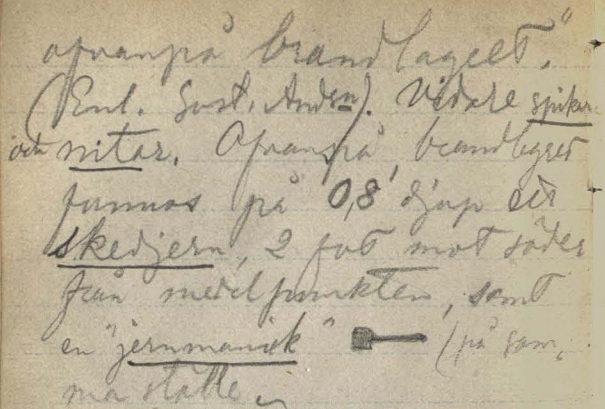 ofvanpå brandlagret."
(Enl. Gust. Andsn). Vidare spikar
och nitar. Ofvanpå brandlagret
funnos på 0,8' djup ett
skedjern, 2 fot mot söder
från medelpunkten, samt
en "jernmanick" (på sam,
ma ställe.